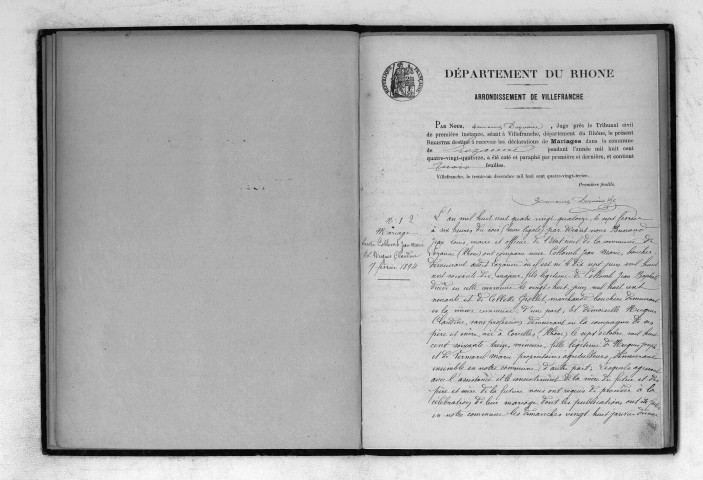 RÉPUBLIQUE FRANÇAISE
DÉPARTEMENT DU RHONE
ARRONDISSEMENT DE VILLEFRANCHE
PAR NOUS, Juge près le Tribunal civil
de première instance, séant à Villefranche, département du Rhône, le présent
REGISTRE destiné à recevoir les déclarations de Mariages dans la commune
de Lozanne pendant l'année mil huit cent
quatre-vingt-quatorze, a été coté et paraphé par première et dernière, et contient
feuilles.
Villefranche, le trente-un décembre mil huit cent quatre-vingt-treize.
Première feuille.
Mariage
entre Collomb Jean Marie
et Vergues Claudine
7 février 1894
L'an mil huit cent quatre vingt quatorze, le sept février
à six heures du soir (heure légale) par devant nous
Jean Louis, maire et officier de l'état civil de la commune de
Lozanne (Rhône) ont comparu sieur Collomb Jean Marie, boucher
demeurant à Lozanne où il est né le dix sept juin mil huit
cent soixante dix, majeur, fils légitime de Collomb Jean
décédé en cette commune le vingt huit juin mil huit cent
nonante et de Collette marchande bouchère demeurant
en la même commune d'une part; Et demoiselle Vergues
Claudine, sans profession demeurant en la compagnie de ses
père et mère, née à Corcelles (Rhône) le sept octobre mil huit
cent soixante treize, mineure, fille légitime de Vergues
et de Marie propriétaires agriculteurs, demeurant
ensemble en notre commune, d'autre part; Lesquels agissant
avec l'assistance et le consentement de la mère du futur et des
père et mère de la future nous ont requis de procéder à la
célébration de leur mariage dont les publications ont été faites
en notre commune les dimanches vingt huit janvier dernier